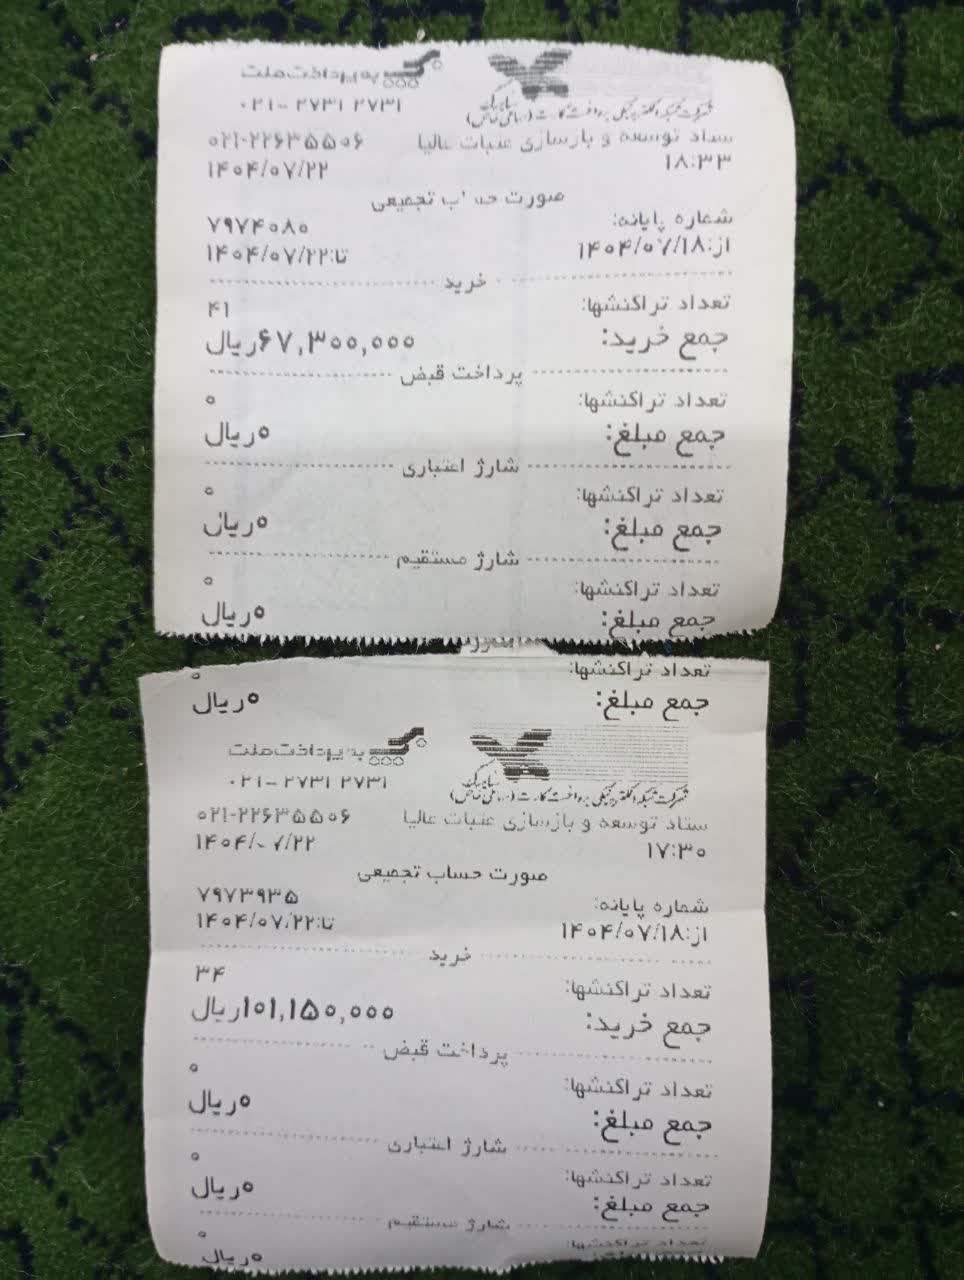 به پرداخت ملت
۰۲۱-۲۷۳۱ ۲۷۳۱
شرکت شبکه الکترونیکی پرداخت کارت (سهامی خاص)
ستاد توسعه و بازسازی عتبات عالیا ۰۲۱-۲۲۶۳۵۵۰۶
۱۸:۳۳ ۱۴۰۴/۰۷/۲۲
صورت حساب تجمیعی
شماره پایانه: ۷۹۷۴۰۸۰
از:۱۴۰۴/۰۷/۱۸ تا:۱۴۰۴/۰۷/۲۲
خرید
تعداد تراکنشها: ۴۱
جمع خرید: ۶۷,۳۰۰,۰۰۰ریال
پرداخت قبض
تعداد تراکنشها: ۰
جمع مبلغ: ۰ریال
شارژ اعتباری
تعداد تراکنشها: ۰
جمع مبلغ: ۰ریال
شارژ مستقیم
تعداد تراکنشها: ۰
جمع مبلغ: ۰ریال
تعداد تراکنشها: ۰
جمع مبلغ: ۰ریال
به پرداخت ملت
۰۲۱-۲۷۳۱ ۲۷۳۱
شرکت شبکه الکترونیکی پرداخت کارت (سهامی خاص)
ستاد توسعه و بازسازی عتبات عالیا ۰۲۱-۲۲۶۳۵۵۰۶
۱۷:۳۰ ۱۴۰۴/۰۷/۲۲
صورت حساب تجمیعی
شماره پایانه: ۷۹۷۳۹۳۵
از:۱۴۰۴/۰۷/۱۸ تا:۱۴۰۴/۰۷/۲۲
خرید
تعداد تراکنشها: ۳۴
جمع خرید: ۱۰۱,۱۵۰,۰۰۰ریال
پرداخت قبض
تعداد تراکنشها: ۰
جمع مبلغ: ۰ریال
شارژ اعتباری
تعداد تراکنشها: ۰
جمع مبلغ: ۰ریال
شارژ مستقیم
تعداد تراکنشها: ۰
۰ریال